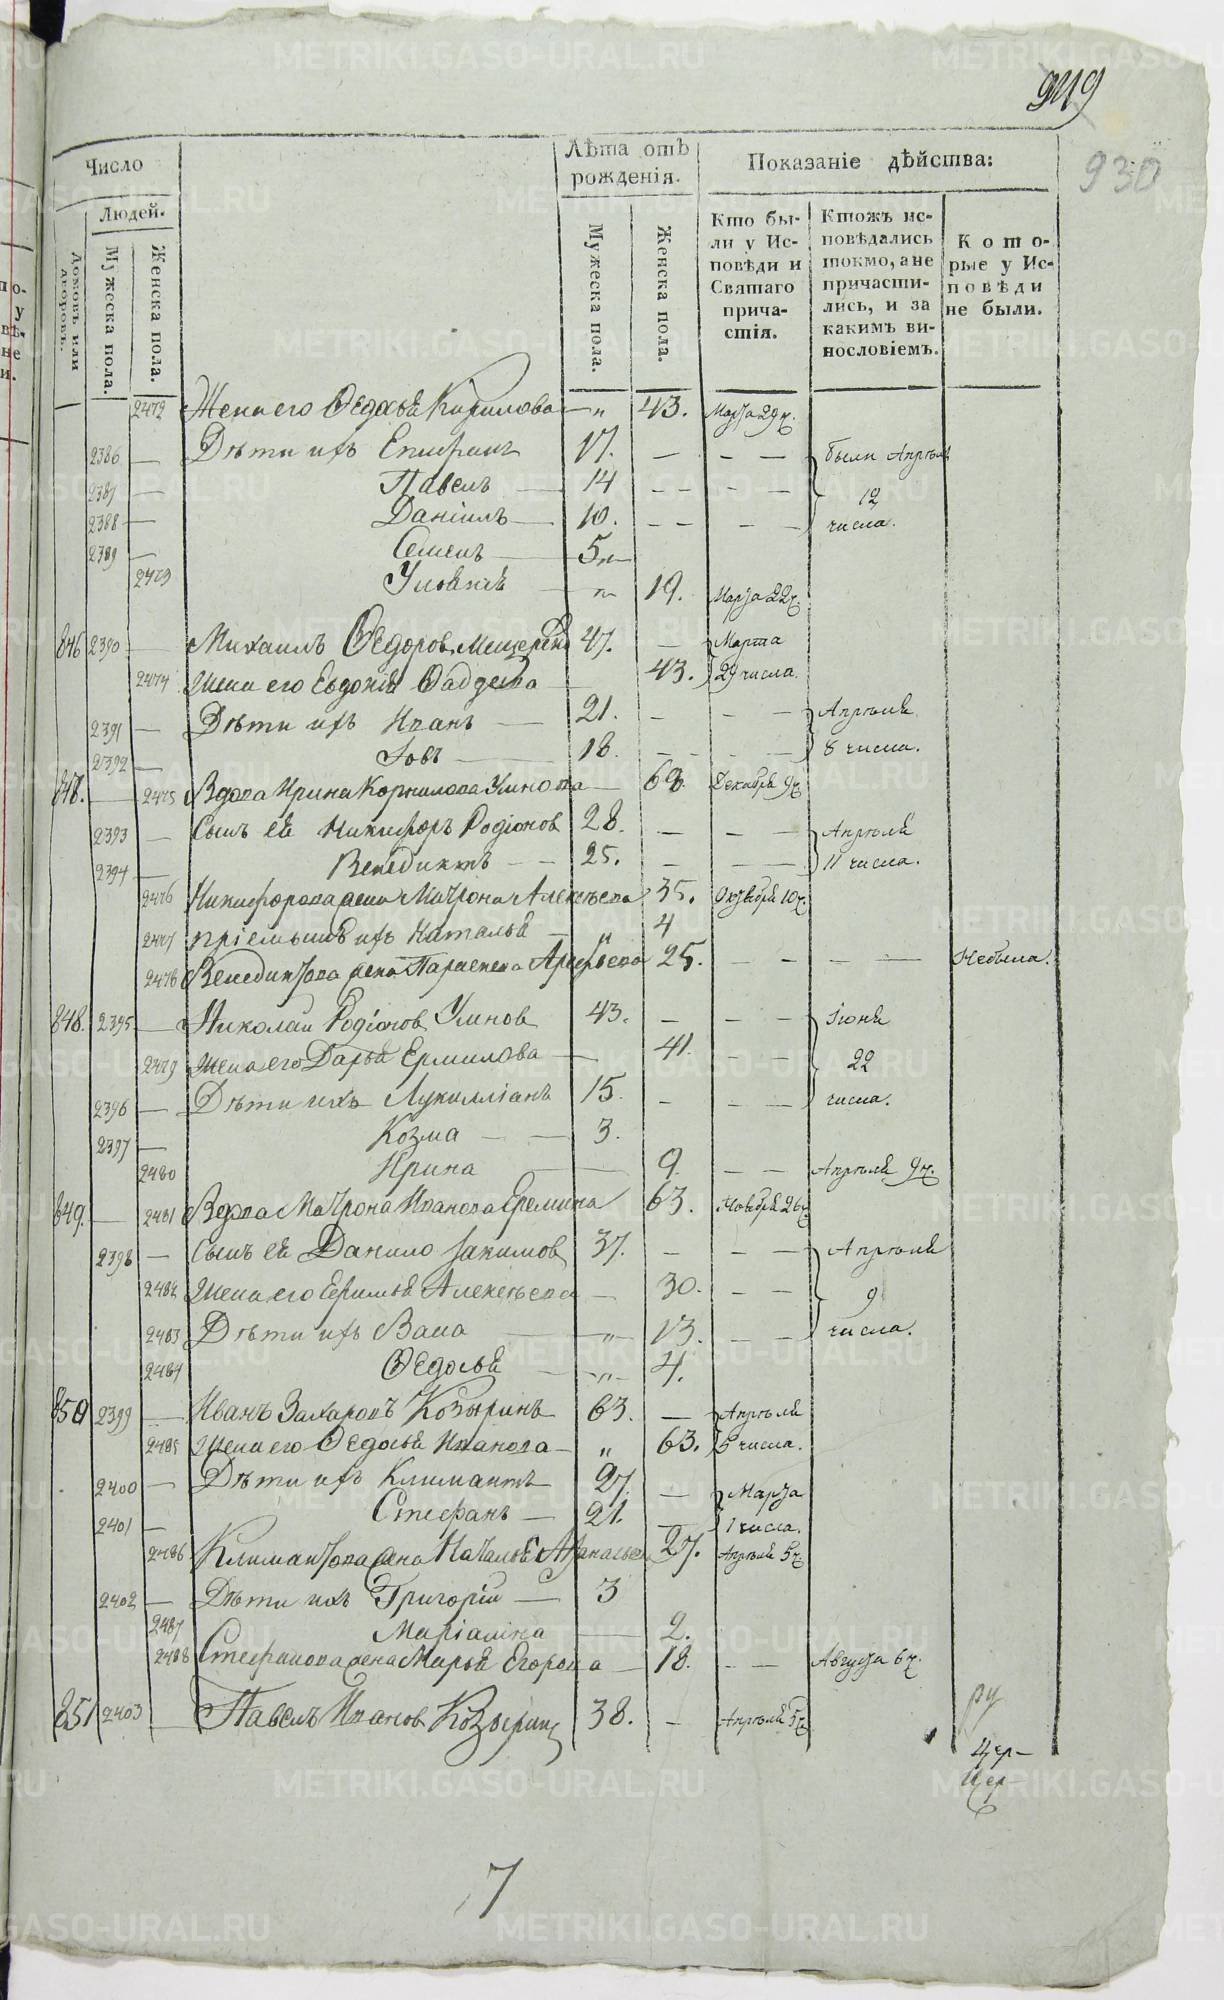 949
930
Число
Людей.
Домовъ или дворовъ.
Мужеска пола.
Женска пола.
Лѣта отъ рожденія.
Мужеска пола.
Женска пола.
Показаніе дѣйства:
Кто бы-
ли у Ис-
повѣди и
Святаго
прича-
стія.
Ктожъ ис-
повѣдались
токмо, а не
причасти-
лись, и за
какимъ ви-
нословіемъ.
Кото-
рые у Ис-
повѣди
не были.
2472 Жена его Ѳедосья Кирилова — „ 43. Марта 29 ч.
2386 — Дѣти ихъ Епифанъ 17. — — — были Апрѣля
2387 — Павелъ — 14 — — — — 12
2388 — Даніилъ — 10. — — — — числа.
2389 — Семенъ — 5 „
2473 — „ 19. Марта 22 ч.
846 2390 — Михаилъ Ѳедоровъ 47. — Марта
2474 Жена его Евдокія — 43. 29 числа.
2391 — Дѣти ихъ Иванъ — 21. — — — Апрѣля
2392 — Іовъ — 18. — — — 8 числа.
847. — 2475 Вдова Ирина Корнилова Уинова — 68. Декабря 9 ч.
2393 — Сынъ ея Никифоръ Родіонов 28. — — — Апрѣля
2394 — Венедиктъ — — 25. — — — 11 числа.
2476 Никифорова жена Матрона Алексѣева 35. Октября 10 ч.
2477 пріемышъ ихъ Наталья — „ 4
2478 Венедиктова жена 25. — — — — Небыла.
848. 2395 — Николай Родіонов Уинов 43. — — — Іюня
2479 жена его Дарья Ермилова — 41. — — 22
2396 — Дѣти ихъ Лукилліанъ 15. — — — числа.
2397 — Козма — — 3.
2480 Ирина — 9 — — Апрѣля 9 ч.
849. — 2481 Вдова Матрона Иванова Еремина 63. Ноября 26 ч.
2398 — Сынъ ея Данило Іакимов 37. — — — Апрѣля
2482 Жена его Алексѣева — 30. — — 9
2483 Дѣти ихъ Васа — „ 13. — — числа.
2484 Ѳедосья — „ 4.
850 2399 — Иванъ Захаровъ Козыринъ 63. — Апрѣля
2485 Жена его Ѳедосья Иванова — „ 63. 5 числа.
2400 — Дѣти ихъ Климантъ 27 — Марта
2401 — Стефанъ — 21. — 1 числа.
2486 Климантова жена Наталья 27. Апрѣля 5 ч.
2402 — Дѣти ихъ Григорій — 3
2487 Маріамна — 2.
2488 Стефанова жена Марья Егорова — 18. — — Августа 6 ч.
851 2403 — Павелъ Иванов Козырин 38. — Апрѣля 5 ч.
ру
цер-
цер-
7
METRIKI.GASO-URAL.RU